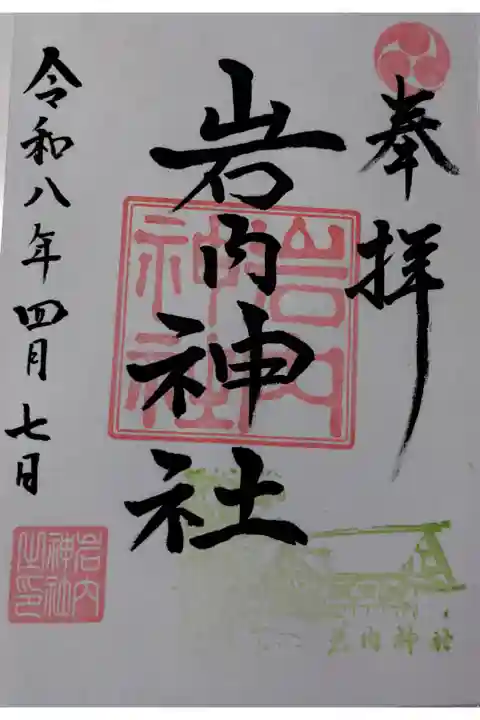 奉拝
岩内神社
岩内
神社
令和八年四月七日
岩内
神社
之印
岩内神社